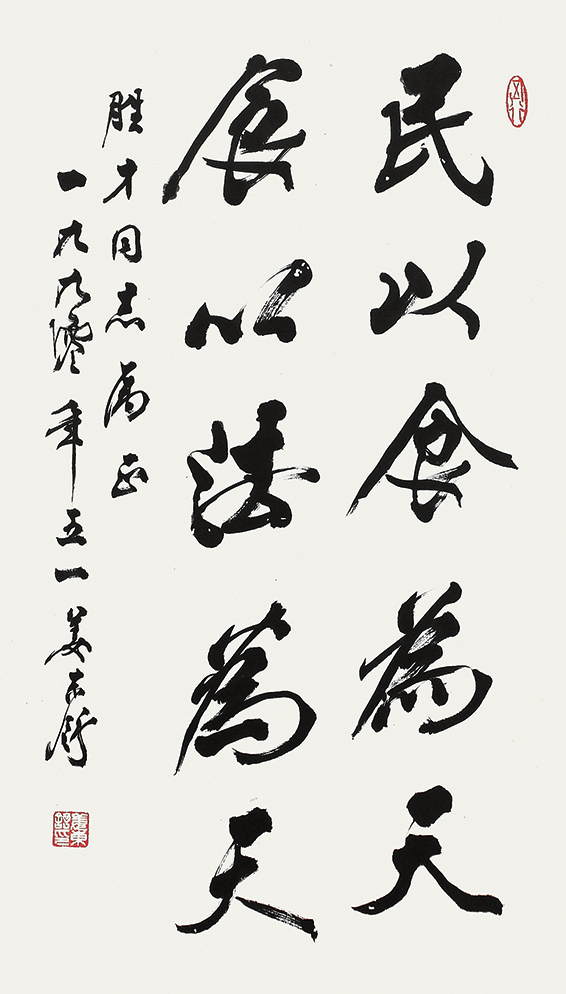 民以食為天
食以法為天
胜才同志属正
一九九零年五一姜东舒
姜東舒印